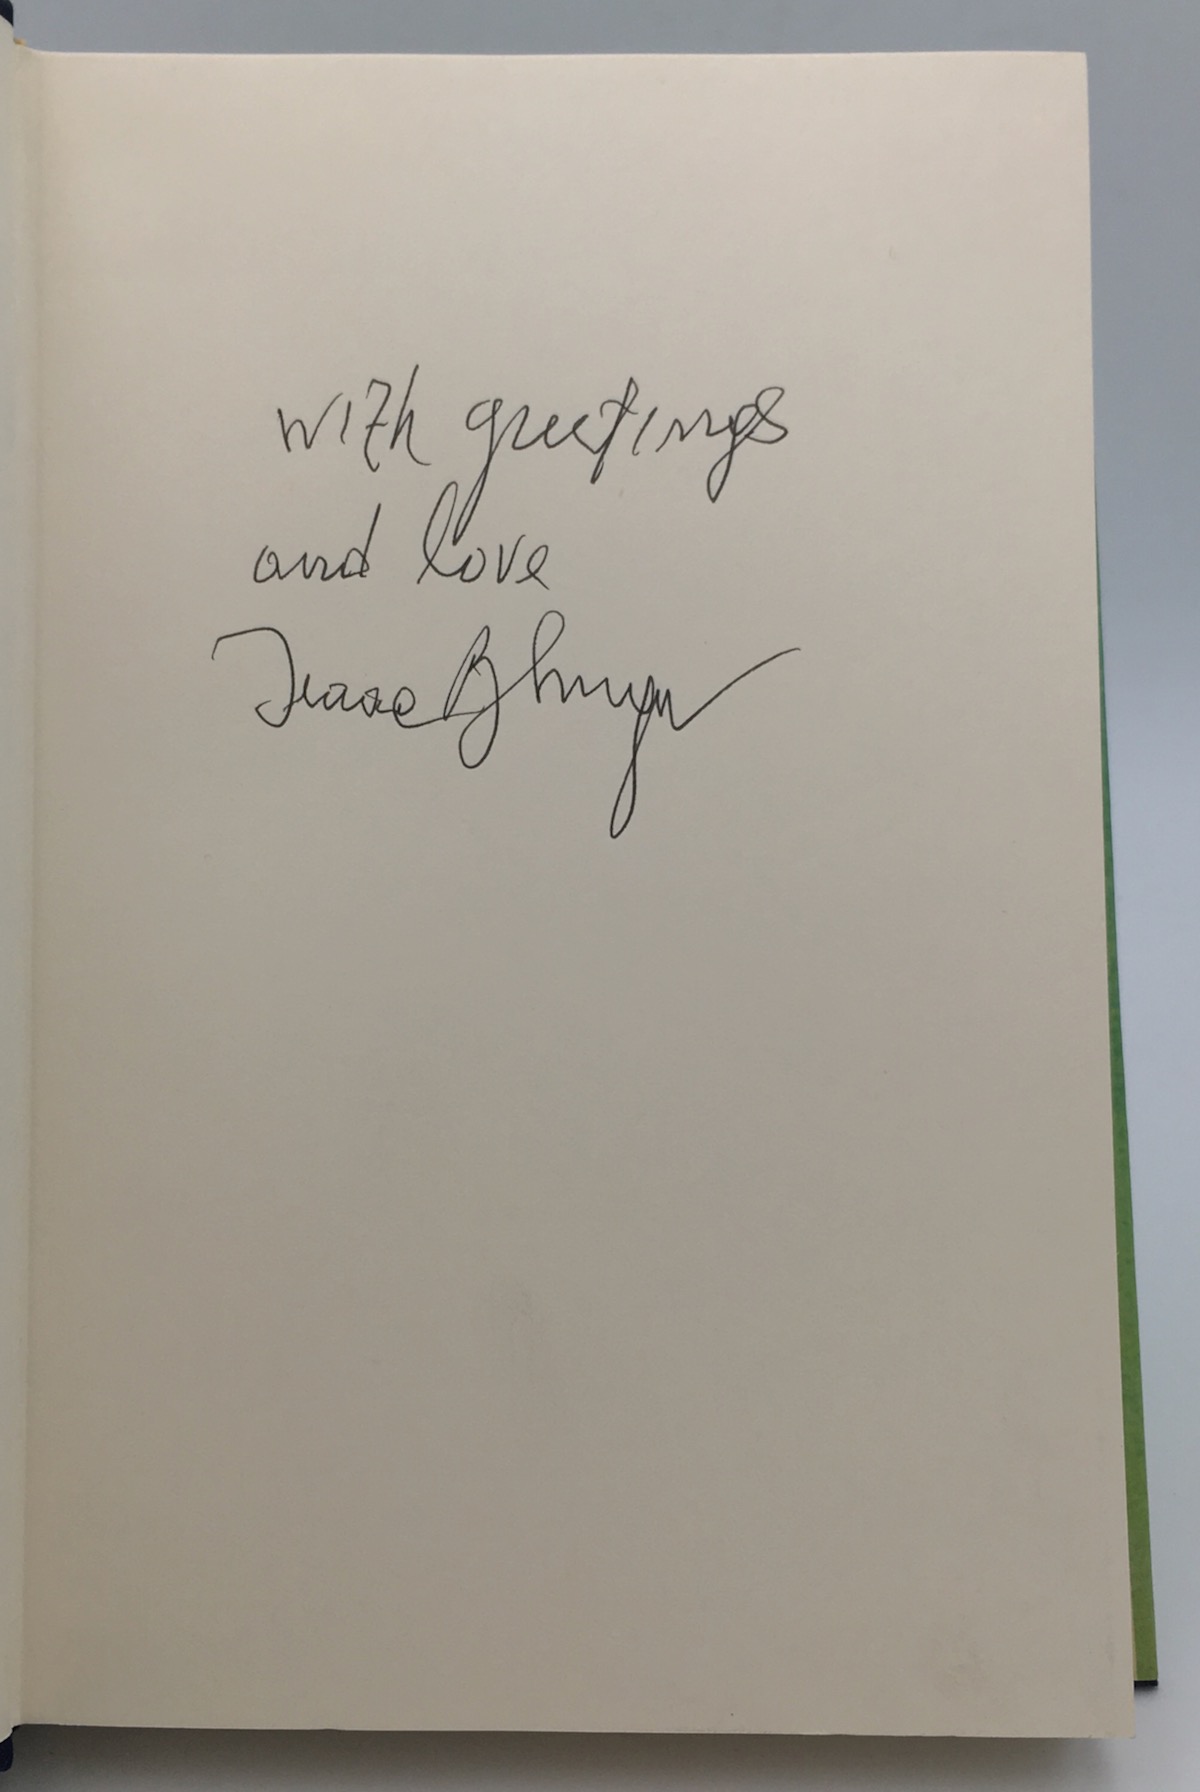 with greetings
and love
Isaac B Singer